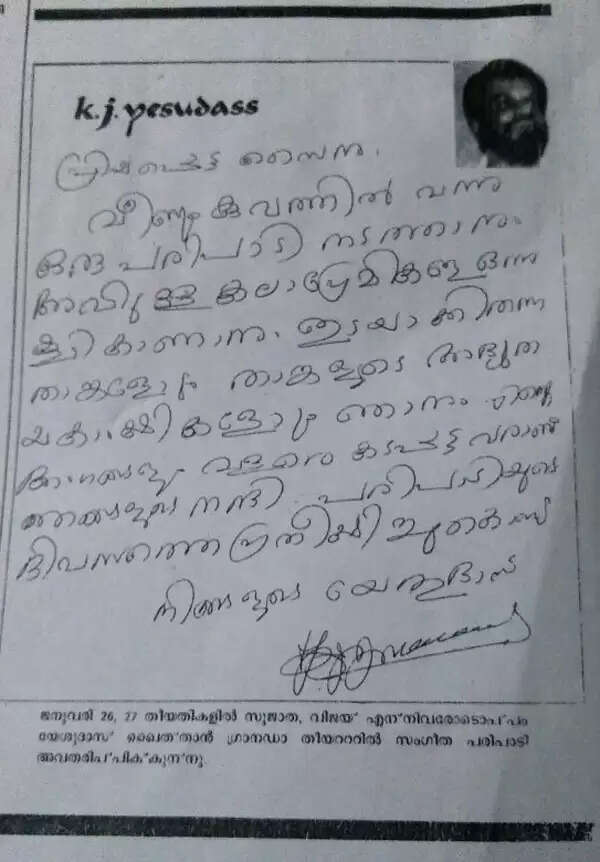 k.j.yesudass
പ്രിയപ്പെട്ട സൈനു.
വീണ്ടും കുവൈത്തിൽ വന്നു
ഒരു പരിപാടി നടത്താനും
അവിടുള്ള കലാപ്രേമികളെ ഒന്നു
കൂടി കാണാനും ഇടയാക്കിതന്ന
താങ്കളോടും താങ്കളുടെ അഭ്യുത
യകാംക്ഷികളോടും ഞാനും എന്റെ
വളരെ കടപ്പെട്ടവരാണ്
ഞങ്ങളുടെ നന്ദി. പരിപാടിയുടെ
ദിവസത്തെ പ്രതീക്ഷിച്ചുകൊണ്ട്
നിങ്ങളുടെ യേശുദാസ്
ജനുവരി 26, 27 തിയതികളിൽ സുജാത, വിജയ് എന്നിവരോടൊപ്പം
യേശുദാസ് ഖൈത്താൻ ഗ്രാനഡാ തിയററററിൽ സംഗീത പരിപാടി
അവതരിപ്പിക്കുന്നു.